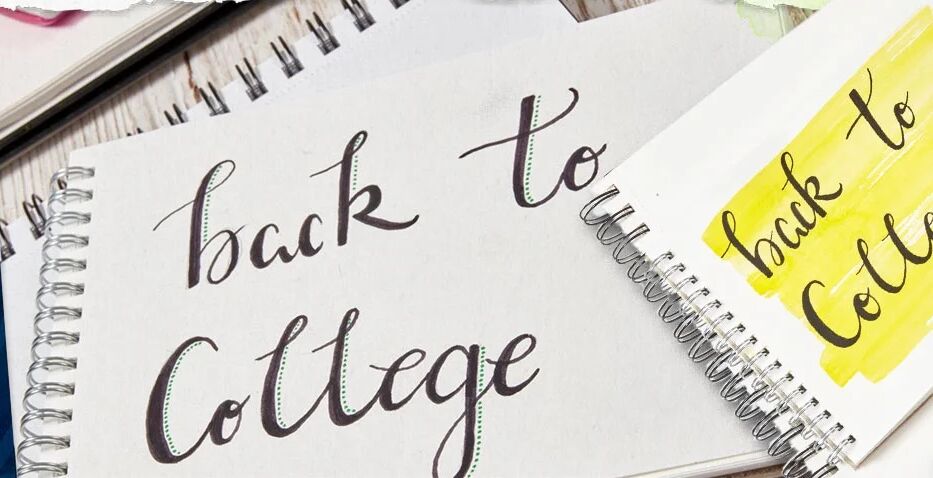 back to
College
back to
Colle